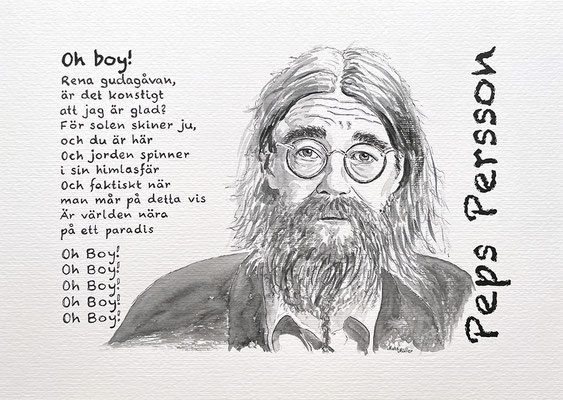 Oh boy!
Rena gudagåvan,
är det konstigt
att jag är glad?
För solen skiner ju,
och du är här
Och jorden spinner
i sin himlasfär
Och faktiskt när
man mår på detta vis
Är världen nära
på ett paradis
Oh Boy!
Oh Boy!
Oh Boy!
Oh Boy!
Oh Boy!
Peps Persson